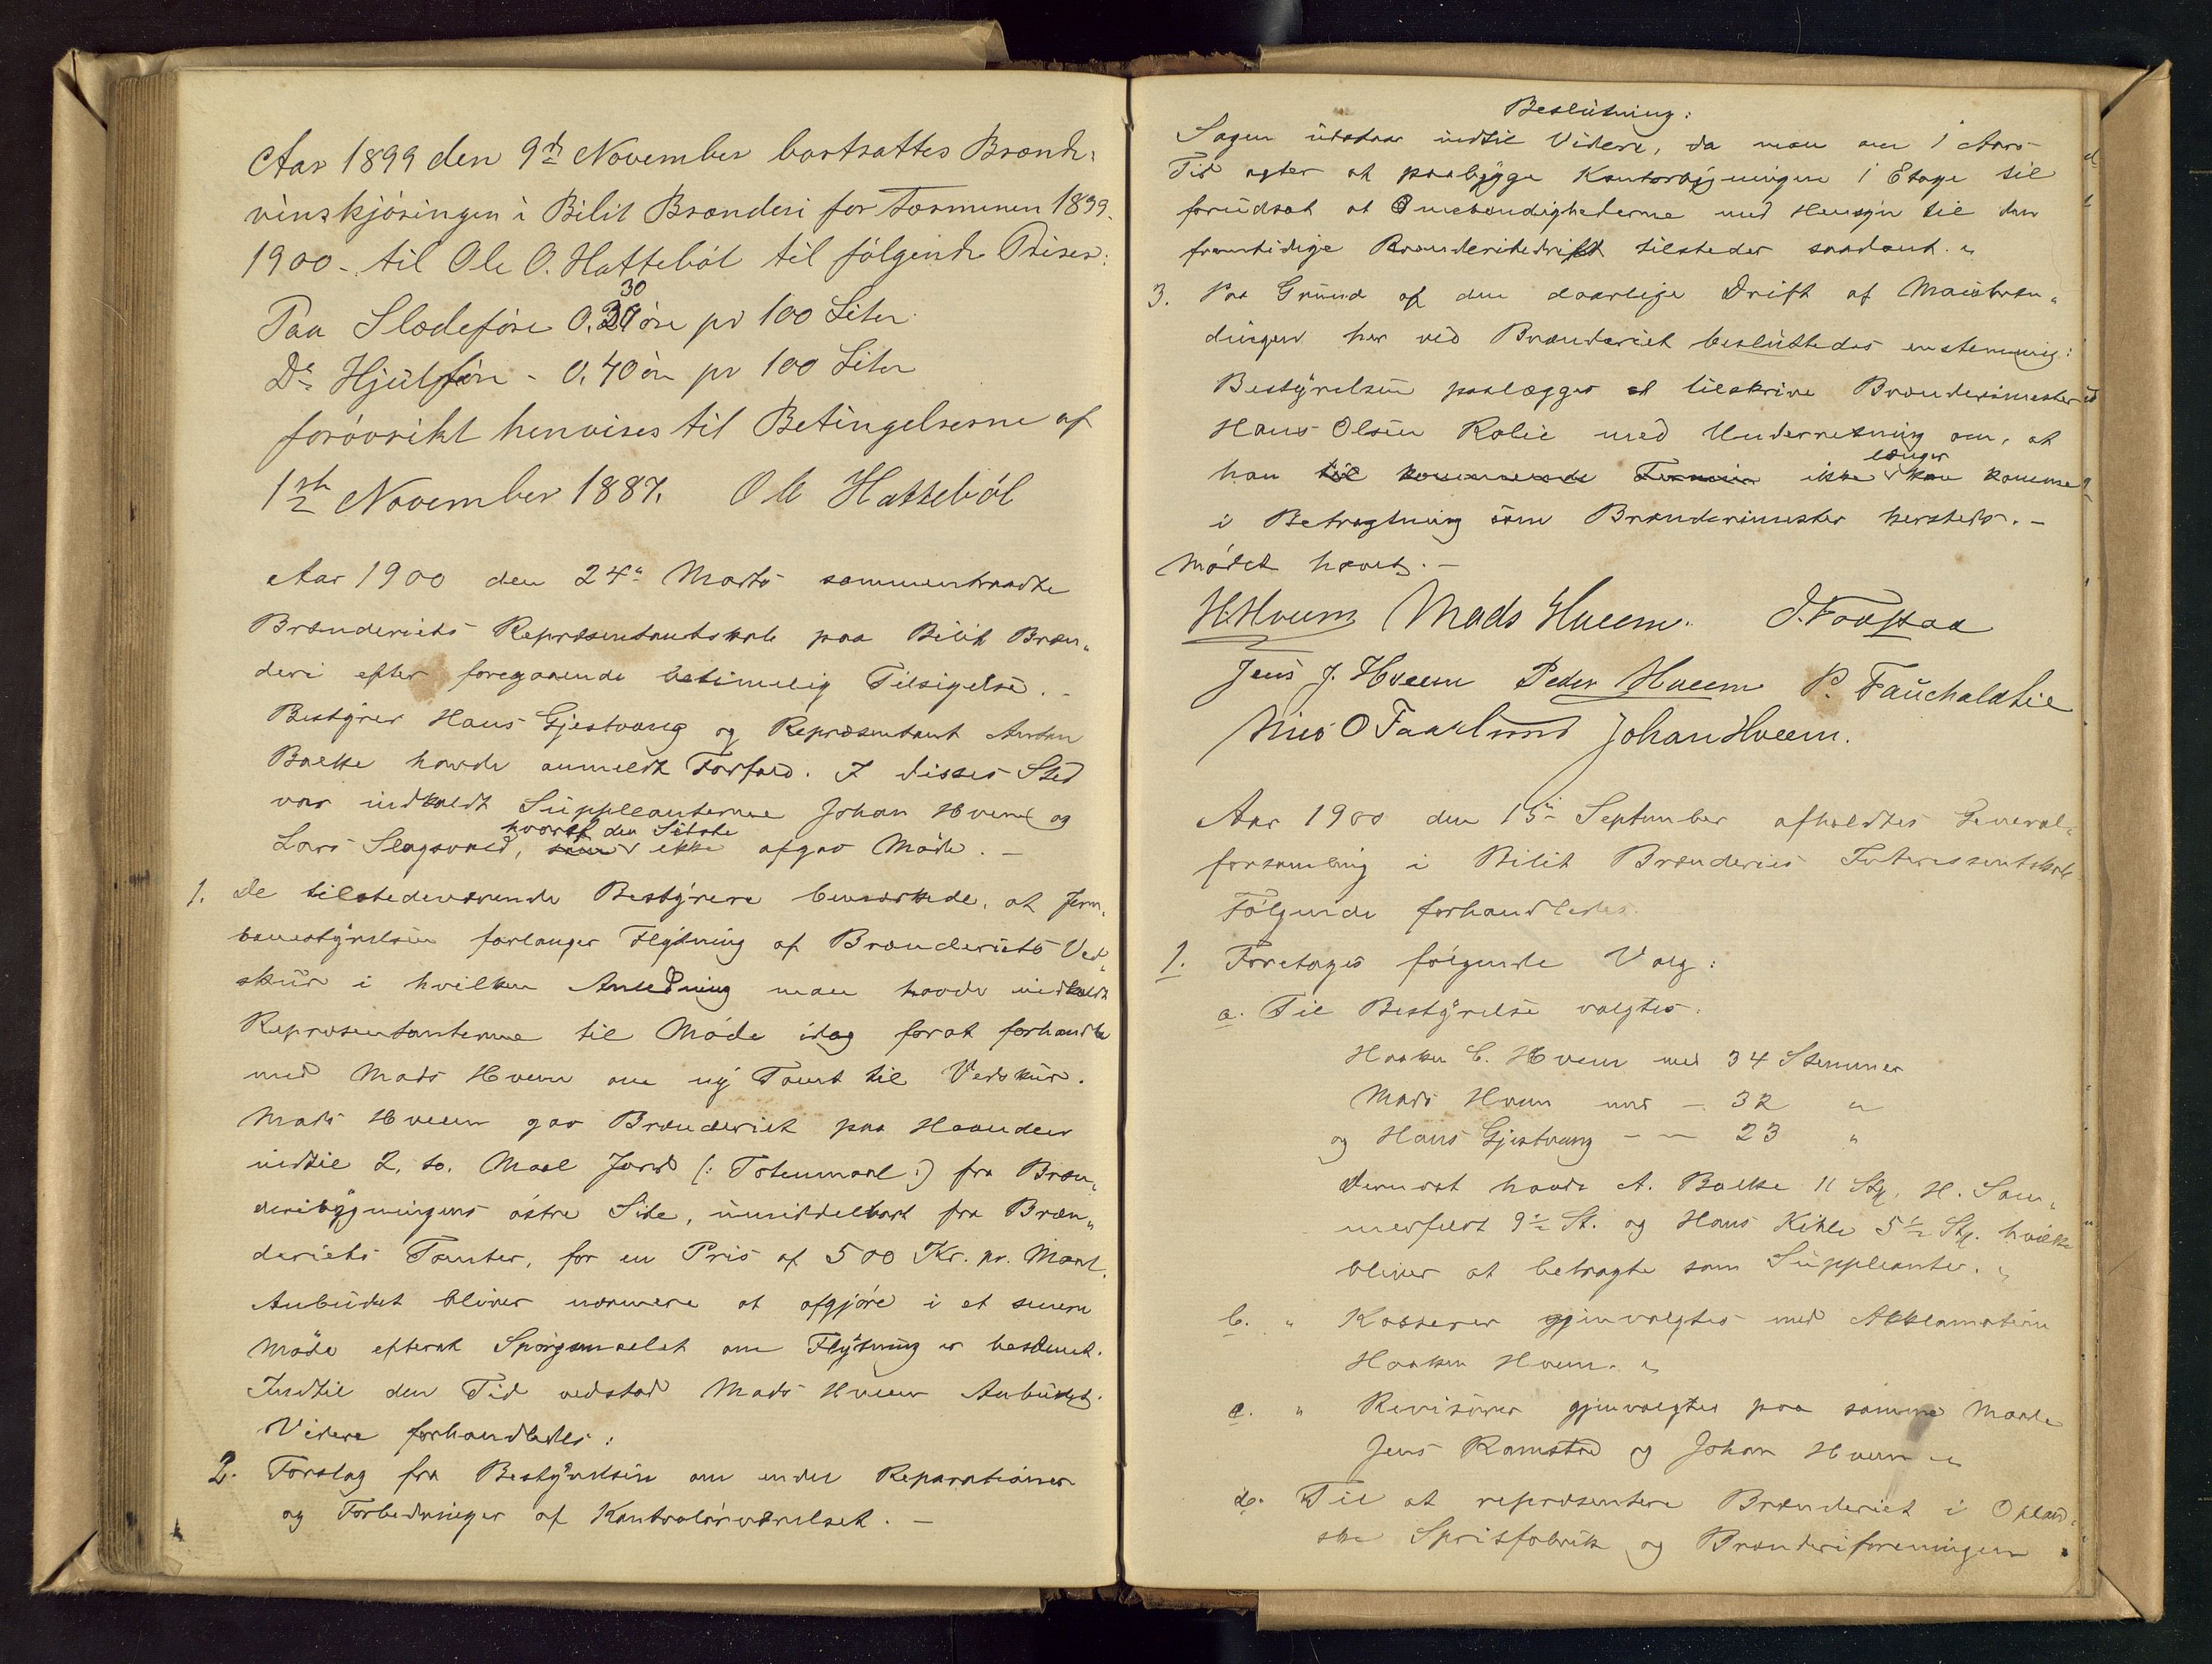 Aar 1899 den 9d November bortsattes Brænde=
vinskjøringen i Bilit Brænderi for Terminen 1899-
1900 - til Ole O. Hattebøl til følgende Priser:
Paa Slædeføre 0.30 øre pr 100 Liter
Do Hjulføre - 0.40 øre pr 100 Liter
forøvrikt henvises til Betingelserne af
1ste November 1887. Ole Hattebøl
Aar 1900 den 24de Marts sammentraadte
Brænderiets Repræsentantskab paa Bilit Bræn„
deri efter foregaaende betimelig Tilsigelse. -
Bestyrer Hans Gjestvang og Repræsentant Anton
Balke havde anmeldt Forfald. I disses Sted
var indkaldt Suppleanterne Johan Hveem og
Lars Slagsvold, hvoraf den Sidste ikke afgav Møde. -
1. De tilstedeværende Bestyrere bemærkede, at Jern„
banestyrelsen forlanger Flytning af Brænderiets Ved„
skur i hvilken Anledning man havde indkaldt
Repræsentanterne til Møde idag forat forhandle
med Mads Hveem om ny Tomt til Vedskur.
Mads Hveem gav Brænderiet paa Haanden
indtil 2, to, Maal Jord (: Totenmaal :) fra Bræn„
deribygningens østre Side, umiddelbart fra Bræn„
deriets Tomter, for en Pris af 500 Kr. pr. Maal.
Anbudet bliver nærmere at afgjøre i et senere
Møde efterat Spørgsmaalet om Flytning er bestemt.
Indtil den Tid vedstod Mads Hveem Anbudet.
Videre forhandledes:
2. Forslag fra Bestyrelsen om endel Reparationer
og Forbedringer af Kontrolørværelset. -
Beslutning:
Sagen udstaar indtil Videre, da man om 1 Aars
Tid agter at paabygge Kontorbygningen 1 Etage til
forudsat at Omstændighederne med Hensyn til den
fremtidige Brænderibedrift tilsteder saadant. „
3. Paa Grund af den daarlige Drift af Maisbræn„
dingen her ved Brænderiet besluttedes enstemmig:
Bestyrelsen paalægges at tilskrive Brænderimester
Hans Olsen Kolie med Underretning om, at
han til kommende Termin ikke længer kan komme
i Betragtning som Brænderimester hersteds. -
Mødet hævet. -
H. Hveem Mads Hveem. J. Faastaa
Jens J. Hveem Peder Hveem P. Fauchaldlie
Nils O Faaklund Johan Hveem.
Aar 1900 den 15de September afholdtes General„
forsamling i Bilit Brænderies Interessentskab
Følgende forhandledes.
1. Foretages følgende Valg:
a. Til Bestyrelse valgtes:
Haaken C. Hveem med 34 Stemmer
Mads Hveem med - 32 „
og Hans Gjestvang - - 23 „
dernæst havde A. Balke 11 St., H. Som„
merfeldt 9½ St. og Hans Kihle 5½ St. hvilke
bliver at betragte som Suppleanter. „
b. „ Kasserer gjenvalgtes med Akklamation
Haaken Hveem. „
c. „ Revisorer gjenvalgtes paa samme Maade
Jens Ramstad og Johan Hveem „
d. Til at repræsentere Brænderiet i Opland„
ske Spritfabrik og Brænderiforeningen